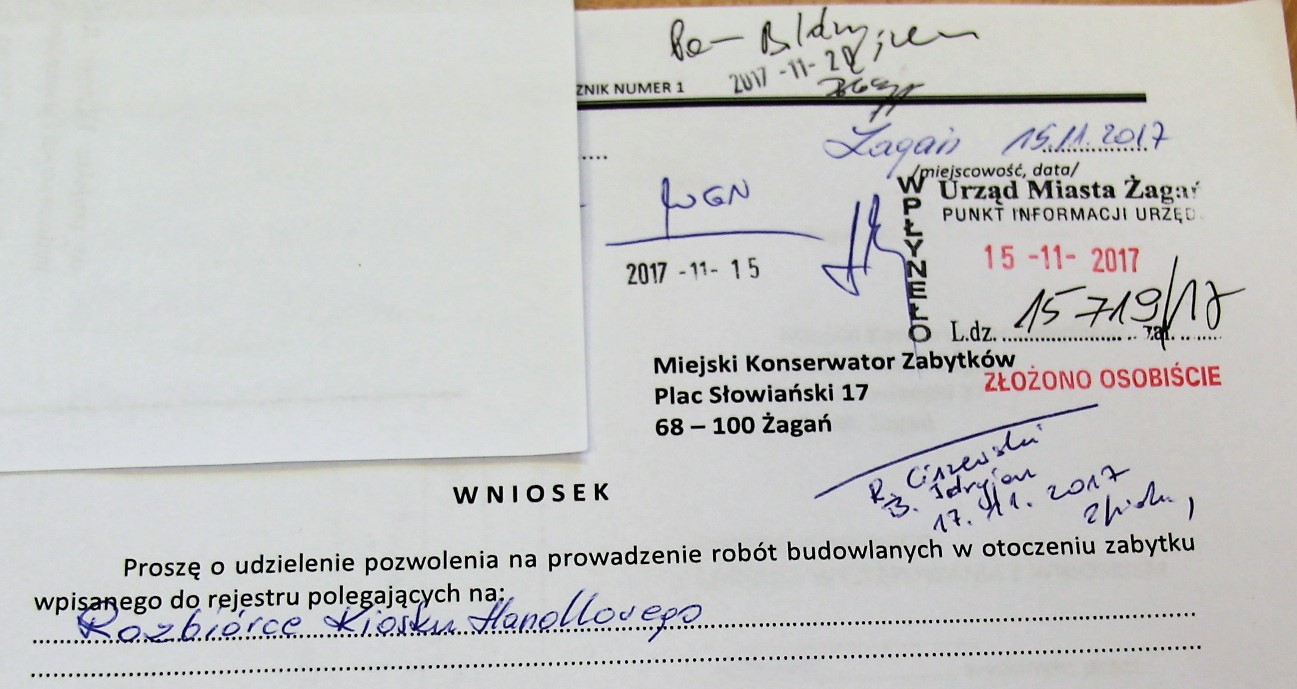 2017 -11- 2
ZNIK NUMER 1
....
Żagań 15.11.2017
/miejscowość, data/
WPŁYNĘŁO
Urząd Miasta Żagań
PUNKT INFORMACJI URZĘD
WGN
15 -11- 2017
2017 -11- 15
L.dz. 15 719/17 zał.
Miejski Konserwator Zabytków
ZŁOŻONO OSOBIŚCIE
Plac Słowiański 17
68 – 100 Żagań
R. Ciszewski
B.
17. 11. 2017
WNIOSEK
Proszę o udzielenie pozwolenia na prowadzenie robót budowlanych w otoczeniu zabytku
wpisanego do rejestru polegających na:
Rozbiórce Kiosku Handlowego